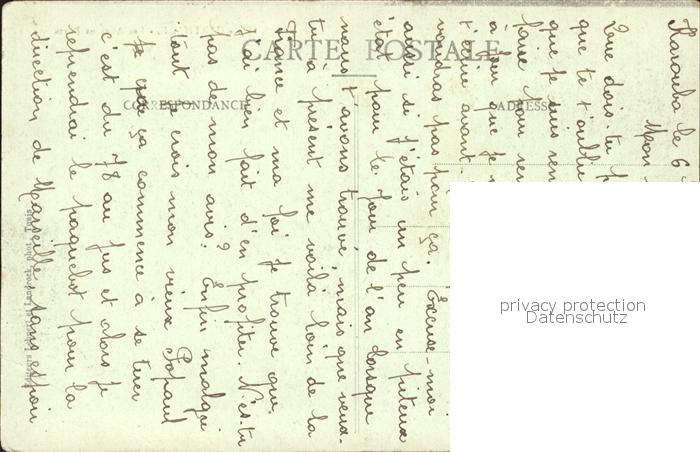 CARTE POSTALE
CORRESPONDANCE
ADRESSE
Karouba le 6
Mon
Que dois-tu p
que je t'oublie
que je suis ren
faire pour ren
à peu que je n
t'écrire avant.
voudras pas pour ça. Excuse-moi
aussi si j'étais un peu en piteux
état pour le jour de l'an lorsque
nous t'avons trouvé, mais que veux-
tu à présent me voilà loin de la
France et ma foi je trouve que
j'ai bien fait d'en profiter. N'es-tu
pas de mon avis? Enfin malgré
tout je crois mon vieux Popaul
que ça commence à se tirer
c'est du 78 au jus et alors je
reprendrai le paquebot pour la
direction de Marseille sans espoir
privacy protection
Datenschutz